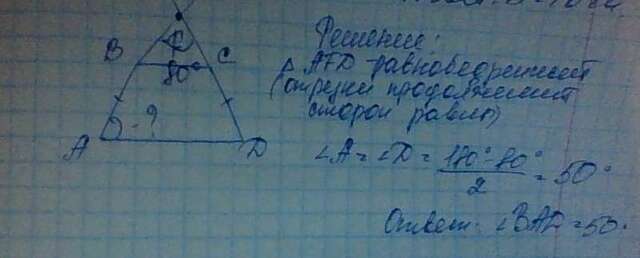 Решение:
B
C
80°
Δ AFD равнобедренный
(отрезки продолжений
сторон равны)
?
A
D
∠A = ∠D = 180° - 80° / 2 = 50°
Ответ: ∠BAD = 50.